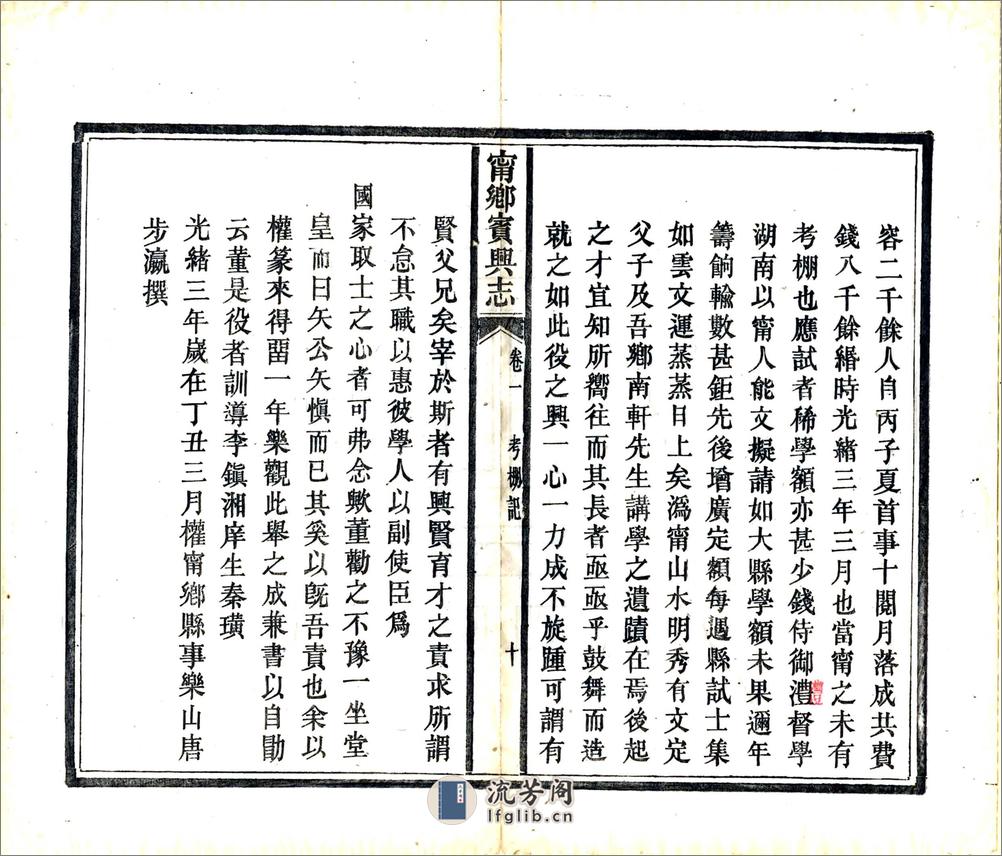 容二千餘人自丙子夏首事十閱月落成共費
錢八千餘緡時光緒三年三月也當甯之未有
考棚也應試者稀學額亦甚少錢侍御澧督學
湖南以甯人能文擬請如大縣學額未果邇年
籌餉輸數甚鉅先後增廣定額每遇縣試士集
如雲文運蒸蒸日上矣溈甯山水明秀有文定
父子及吾鄉南軒先生講學之遺蹟在焉後起
之才宜知所嚮往而其長者亟亟乎鼓舞而造
就之如此役之興一心一力成不旋踵可謂有
甯鄉賓興志
卷一
考棚記
十
賢父兄矣宰於斯者有興賢育才之責求所謂
不怠其職以惠彼學人以副使臣爲
國家取士之心者可弗念歟董勸之不豫一坐堂
皇而曰矢公矢愼而已其奚以旣吾責也余以
權篆來得畱一年樂觀此舉之成兼書以自勖
云董是役者訓導李鎭湘庠生秦璜
光緒三年歲在丁丑三月權甯鄉縣事樂山唐
步瀛撰
流芳阁
lfglib.cn